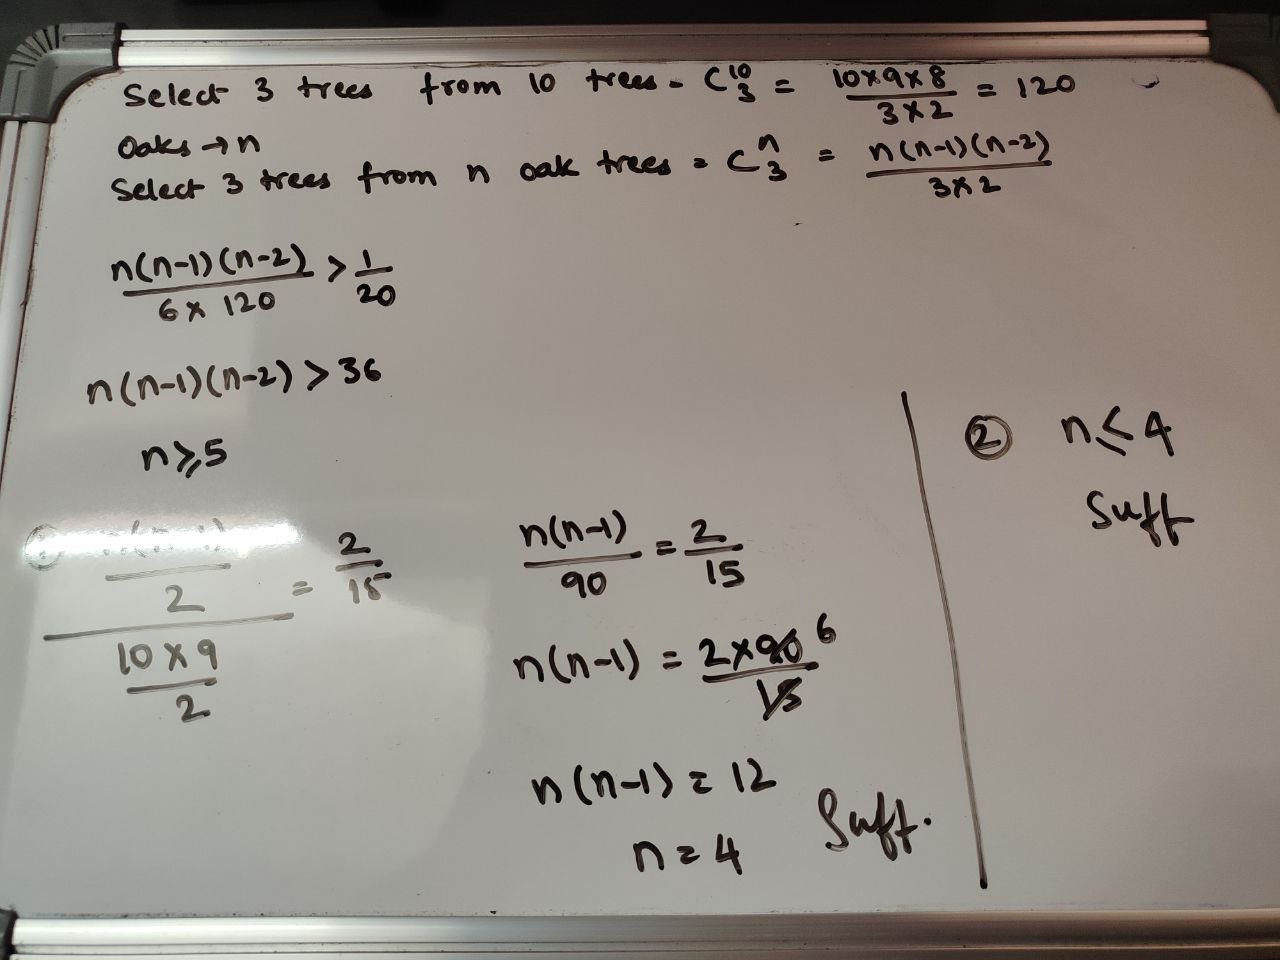 Select 3 trees from 10 trees = C₃¹⁰ = (10×9×8)/(3×2) = 120
Oaks → n
Select 3 trees from n oak trees = C₃ⁿ = n(n-1)(n-2)/(3×2)
n(n-1)(n-2)/(6×120) > 1/20
n(n-1)(n-2) > 36
n ≥ 5
(n(n-1)/2)/((10×9)/2) = 2/15
n(n-1)/90 = 2/15
n(n-1) = (2×90)/15 6
n(n-1) = 12
n = 4 Suff.
② n ≤ 4
Suff